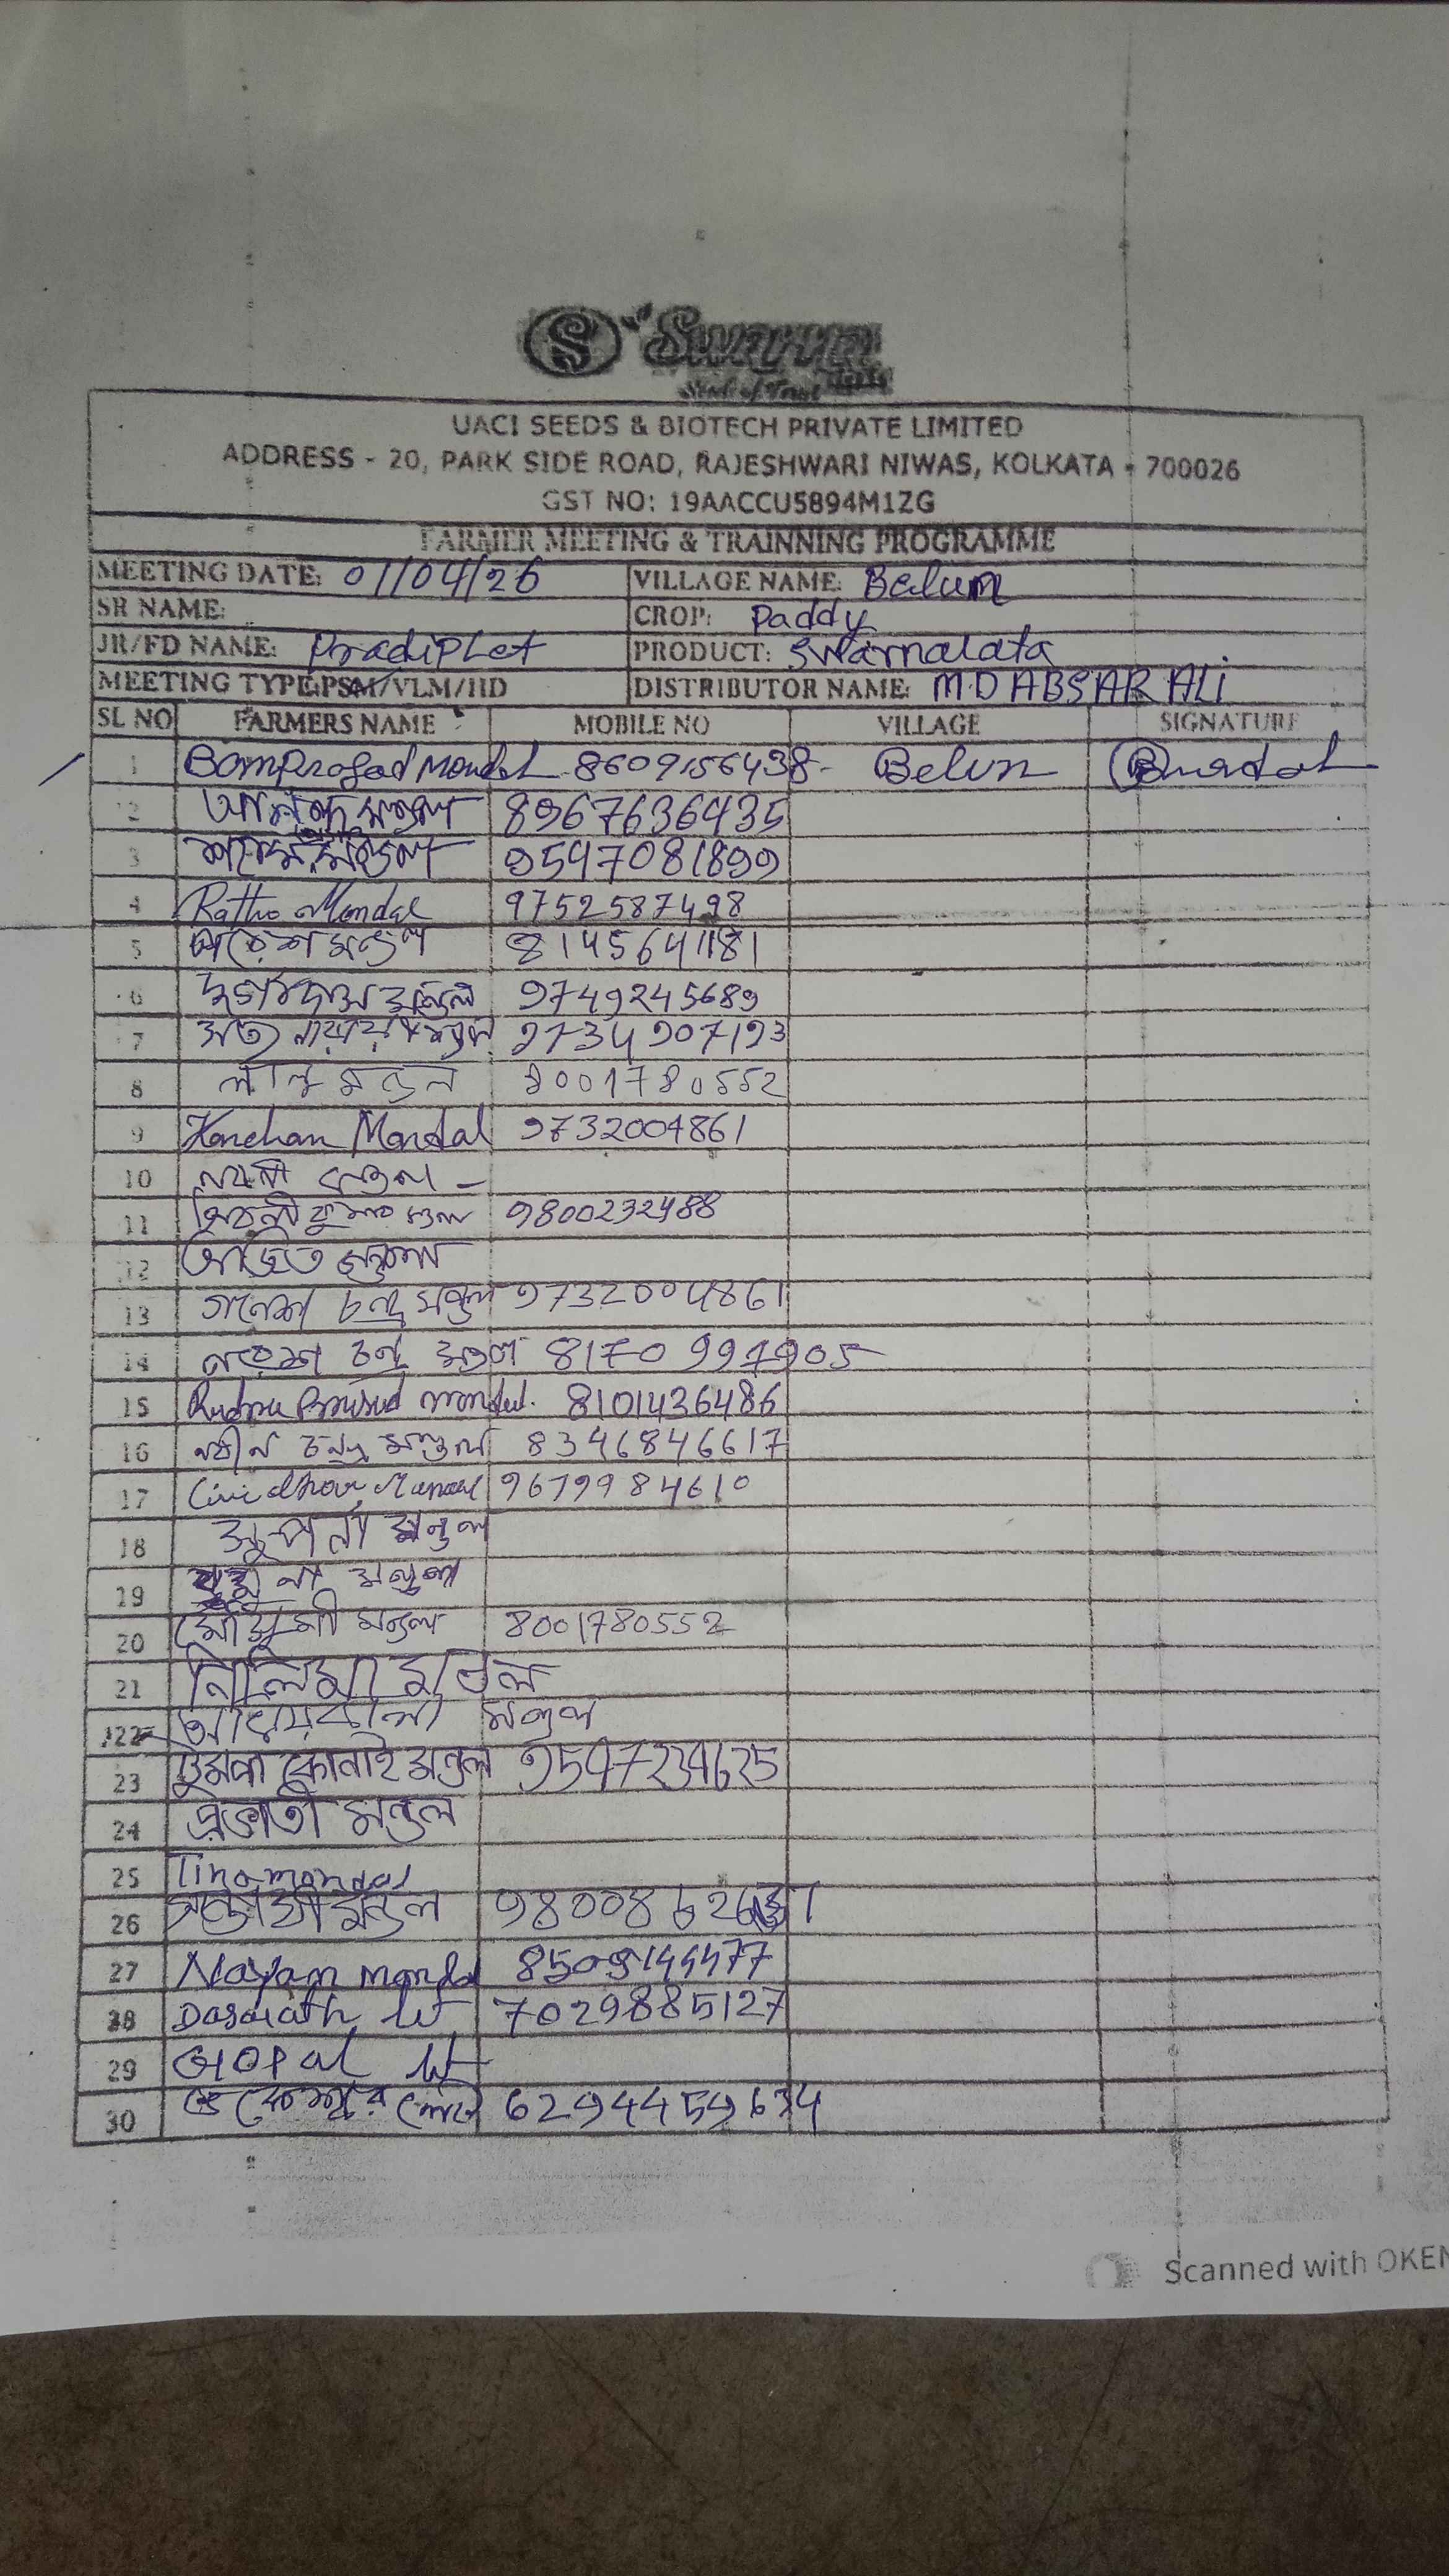 S Swarna
Seeds
Seed of Trust
UACI SEEDS & BIOTECH PRIVATE LIMITED
ADDRESS - 20, PARK SIDE ROAD, RAJESHWARI NIWAS, KOLKATA - 700026
GST NO: 19AACCU5894M1ZG
FARMER MEETING & TRAINNING PROGRAMME
MEETING DATE: 01/04/26 VILLAGE NAME: Belun
SR NAME: CROP: Paddy
JR/FD NAME: Pradip Let PRODUCT: Swarnalata
MEETING TYPE: PSM/VLM/HD DISTRIBUTOR NAME: MD ABSAR ALI
SL NO FARMERS NAME MOBILE NO VILLAGE SIGNATURE
1 Bomprosad Mondal 8609156438 - Belun
2 মণ্ডল 8967636435
3 মণ্ডল 9547081899
4 Ratho Mondal 9752587498
5 পরেশ মণ্ডল 8145641181
6 দুর্গাদাস মণ্ডল 9749245689
7 সত্যনারায়ণ মণ্ডল 9734907193
8 লালু মন্ডল 8001780552
9 Kanchan Mondal 9732004861
10 মন্ডল -
11 কুমার মন্ডল 9800232488
12 অজিত মন্ডল
13 গনেশ চন্দ্র মন্ডল 9732004861
14 নরেশ চন্দ্র মণ্ডল 8170997905
15 Rudra Prasad mondal. 8101436486
16 নবীন চন্দ্র মণ্ডল 8346846617
17 9679984610
18 সুপর্না মন্ডল
19 যমুনা মন্ডল
20 মৌসুমী মন্ডল 8001780552
21 নিলিমা মন্ডল
22 মন্ডল
23 টুম্পা কোনাই মন্ডল 9547234625
24 প্রভাতী মন্ডল
25 Tina mondal
26 মন্ডল
27 Nayan mondal 8509144477
28 Dasarath let 7029885127
29 GOPal let
30 লেট 6294459634
Scanned with OKEN